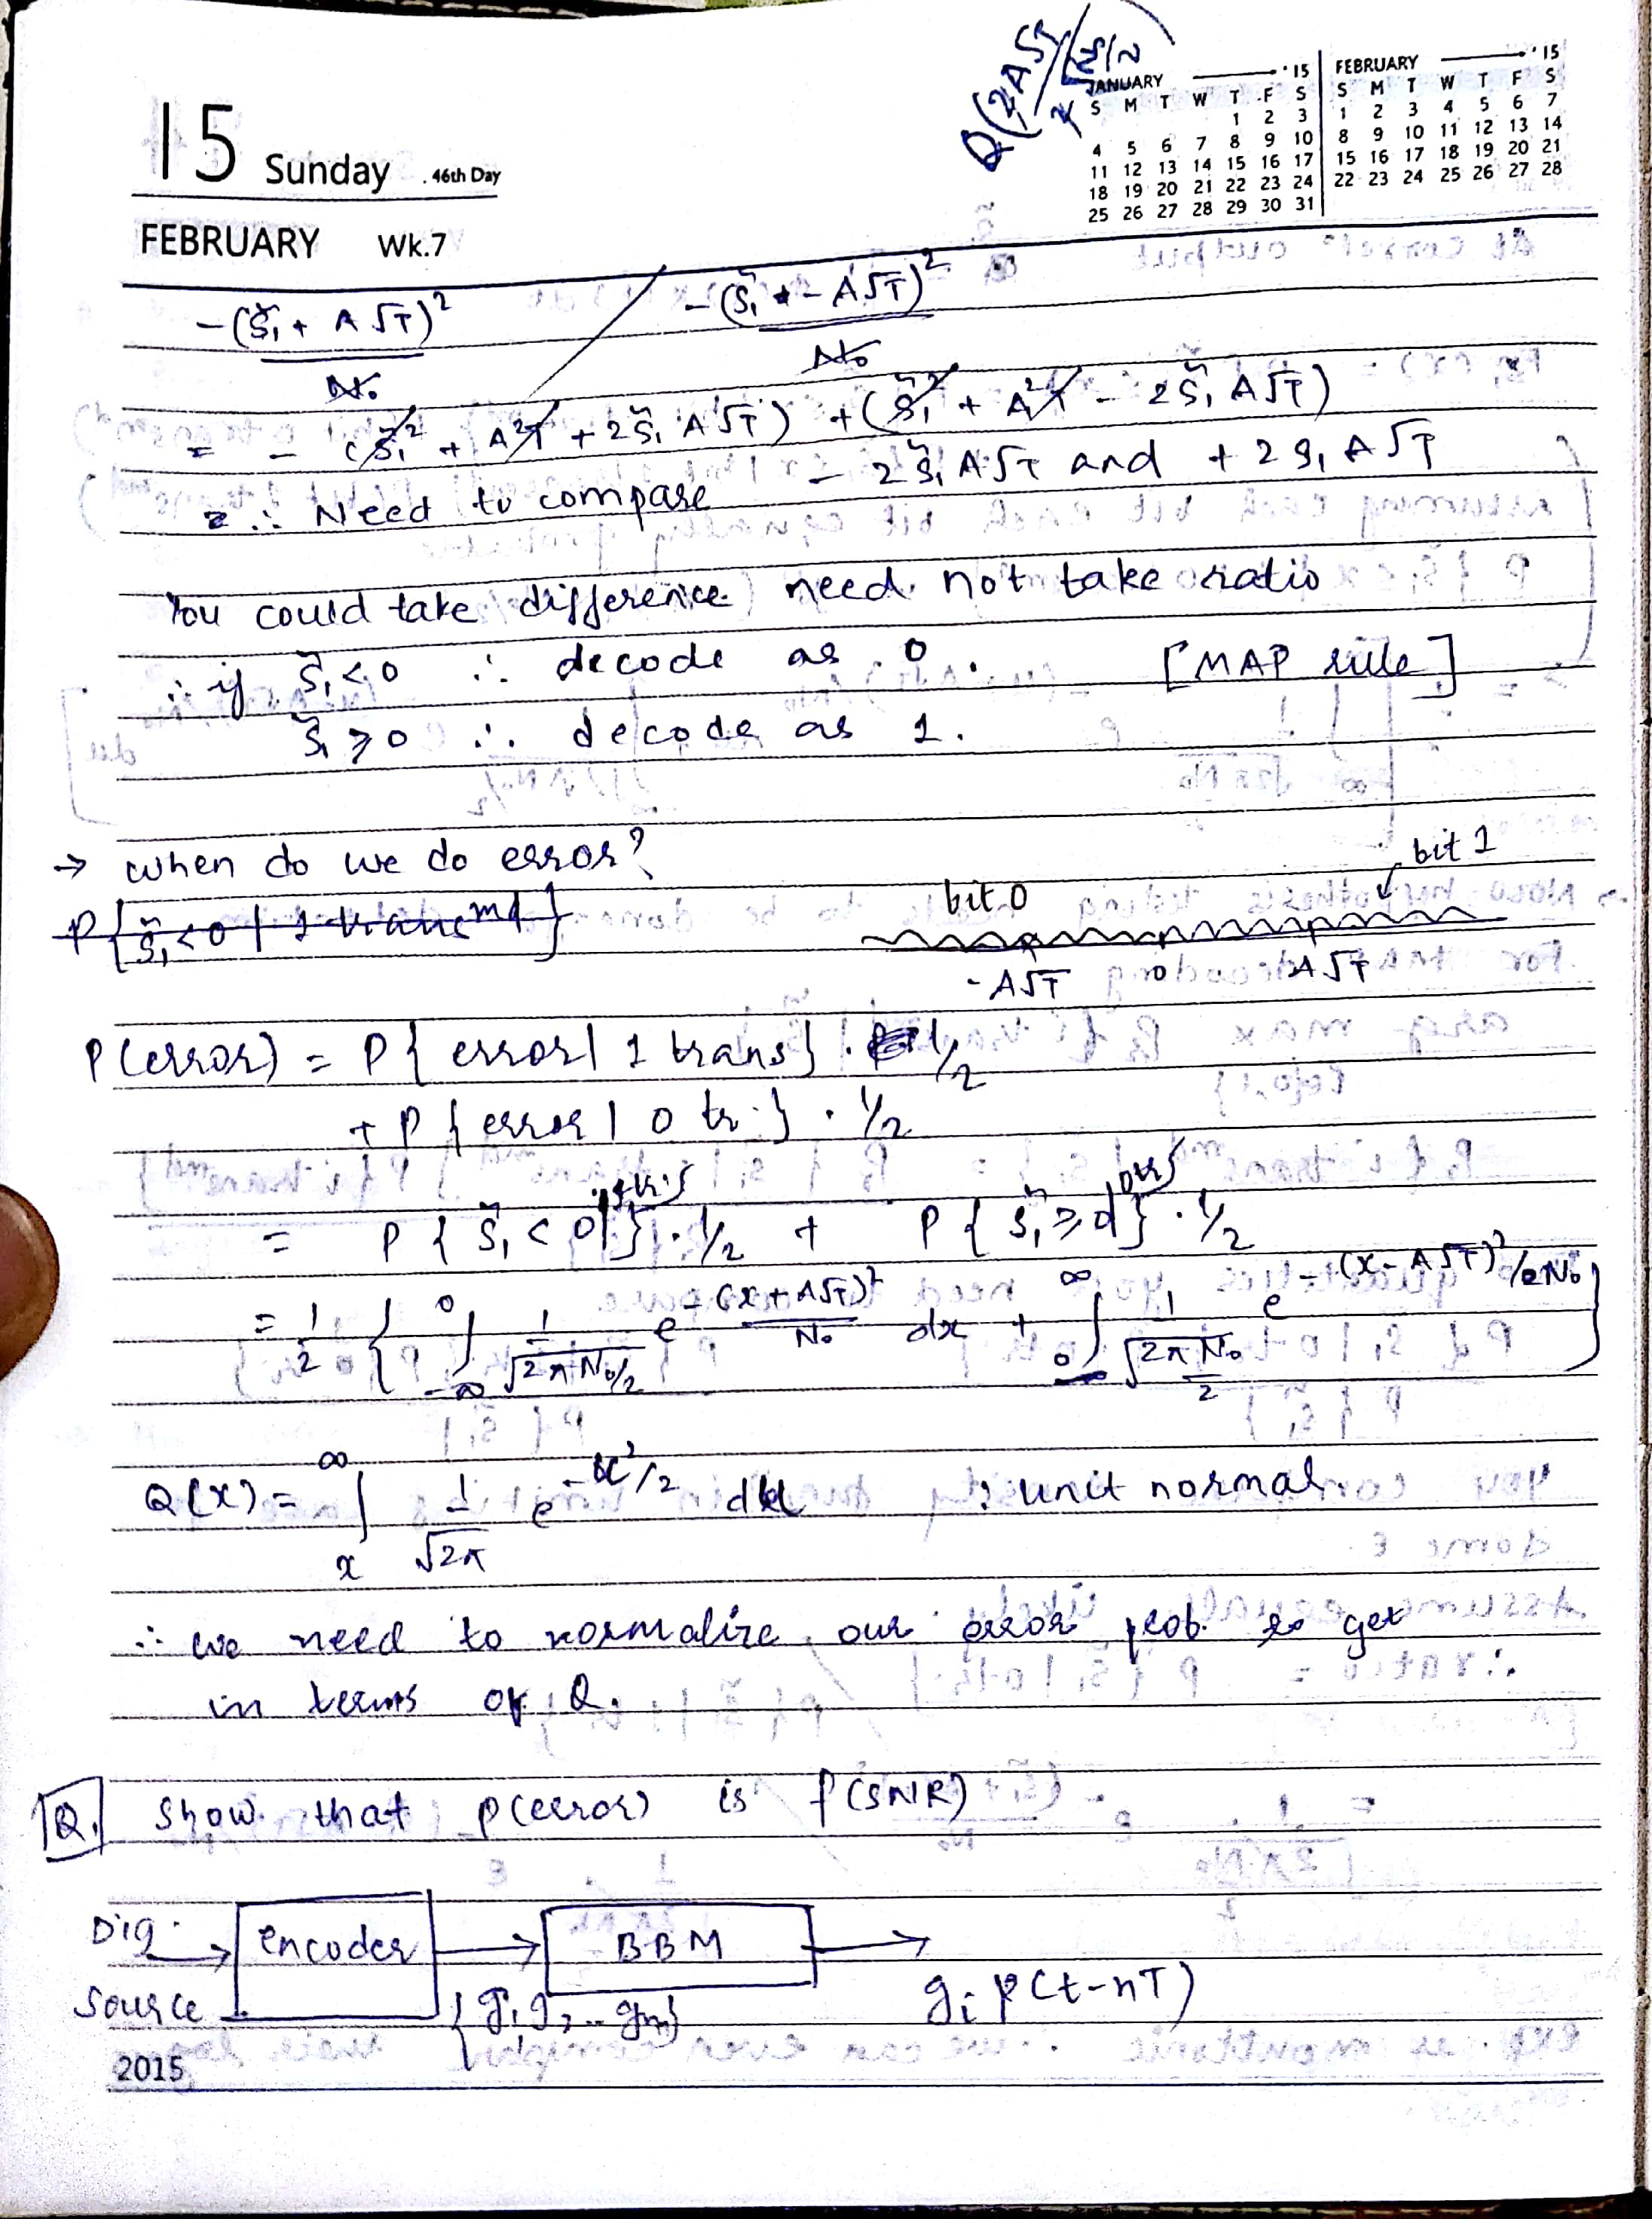 Q(2A√T / √N/2)
15 Sunday . 46th Day
FEBRUARY Wk.7
JANUARY '15
S M T W T F S
1 2 3
4 5 6 7 8 9 10
11 12 13 14 15 16 17
18 19 20 21 22 23 24
25 26 27 28 29 30 31
FEBRUARY '15
S M T W T F S
1 2 3 4 5 6 7
8 9 10 11 12 13 14
15 16 17 18 19 20 21
22 23 24 25 26 27 28
-(s̃₁ + A√T)² / N₀ / -(s̃₁ - A√T)² / N₀
= - (s̃₁² + A²T + 2s̃₁A√T) + (s̃₁² + A²T - 2s̃₁A√T)
∴ Need to compare - 2s̃₁A√T and + 2s₁A√T
You could take difference need not take ratio
∴ if s̃₁ < 0 ∴ decode as 0. [MAP rule]
s̃₁ ≥ 0 ∴ decode as 1.
→ when do we do error?
P{s̃₁<0 | 1 transmd}
bit 0 bit 1
-A√T 0 A√T
P(error) = P{error | 1 trans} . 1/2
+ P{error | 0 tr.} . 1/2
= P{s̃₁ < 0 | 1 tr.} . 1/2 + P{s̃₁ ≥ 0 | 0 tr} . 1/2
= 1/2 { ∫_{-∞}^{0} 1/√(2πN₀/2) e^{-(x+A√T)²/N₀} dx + ∫_{0}^{∞} 1/√(2πN₀/2) e^{-(x-A√T)²/2N₀} }
Q(x) = ∫_{x}^{∞} 1/√2π e^{-u²/2} du : unit normal
∴ we need to normalize our error prob. to get
in terms of Q.
Q. Show that p(error) is f(SNR)
Dig. Source → encoder → BBM →
{g₁g₂..gm} gᵢ p(t-nT)
2015